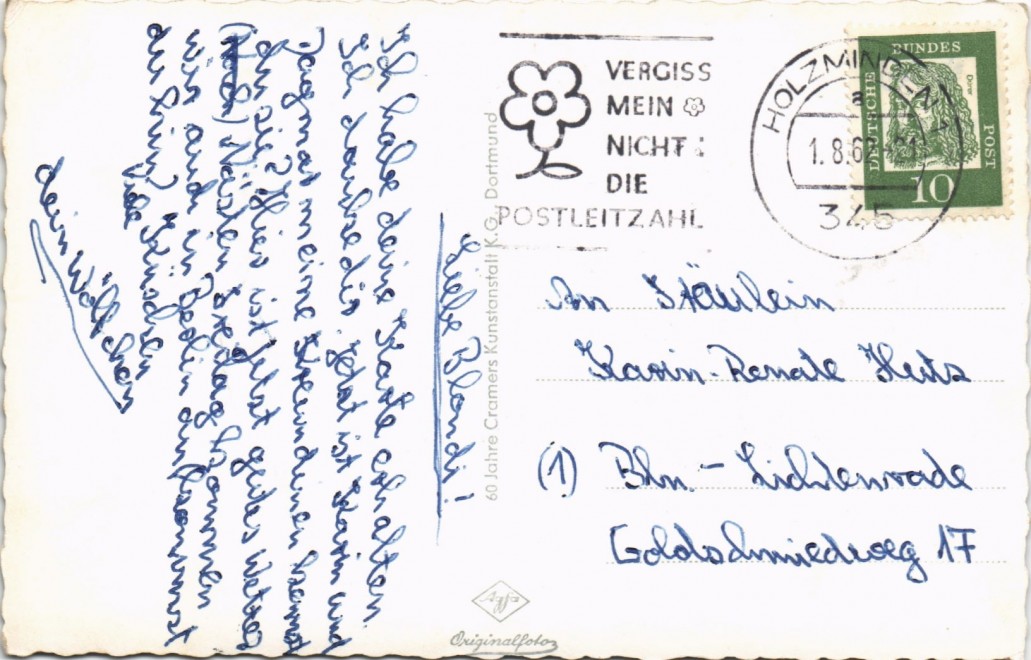 Liebe Blondi!
Ich habe deine Karte erhalten.
Ich danke dir, jetzt ist Karin und
Dagmar meine Freundinen kennst
du sie? Hier ist jetzt gutes Wetter
(Noch) Nästen Freitag kommen
wir auch in Berlin an kommst
du hin? Küschen
dein Wölfchen
60 Jahre Cramers Kunstanstalt K.G., Dortmund
VERGISS
MEIN
NICHT:
DIE
POSTLEITZAHL
HOLZMINDEN
a
1.8.6
345
DEUTSCHE BUNDES POST
Dürer
10
An Fräulein
Karin-Renate
(1) Bln.-Lichtenrade
Goldschmiedweg 17
Agfa
Originalfoto